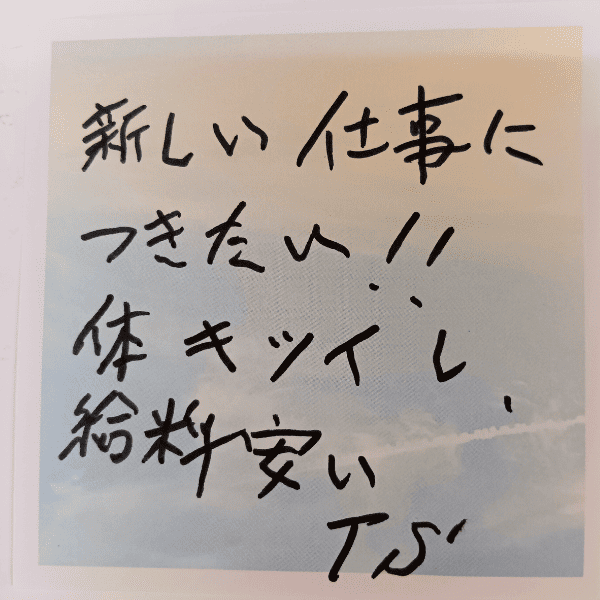 新しい仕事に
つきたい!!
体キツイし、
給料安い
TS